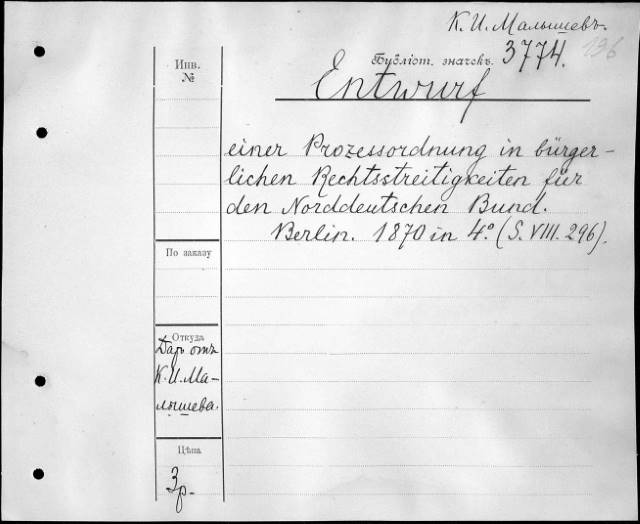 К. И. Малышевъ.
Библіот. значекъ. 3774. 136
Инв.
№
Entwurf
einer Prozessordnung in bürger-
lichen Rechtsstreitigkeiten für
den Norddeutschen Bund.
Berlin. 1870 in 4.° (S. VIII. 296).
По заказу
Откуда
Даръ отъ
К. И. Ма-
лышева.
Цѣна
3 р.-